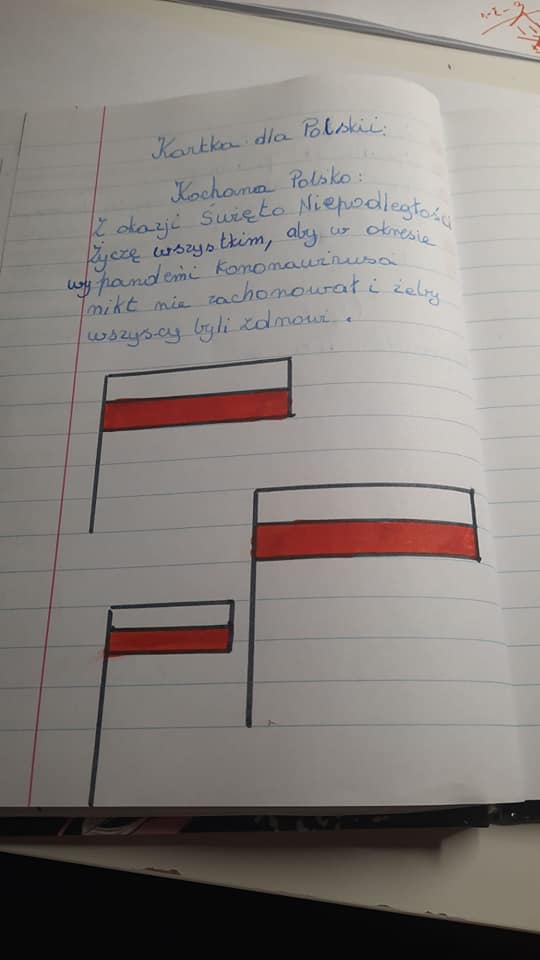 Kartka dla Polskii:
Kochana Polsko:
Z okazji Święto Niepodległości
Życzę wszystkim, aby w okresie
wy pandemi koronawirusa
nikt nie zachorował i żeby
wszyscy byli zdrowi.
1-2-3